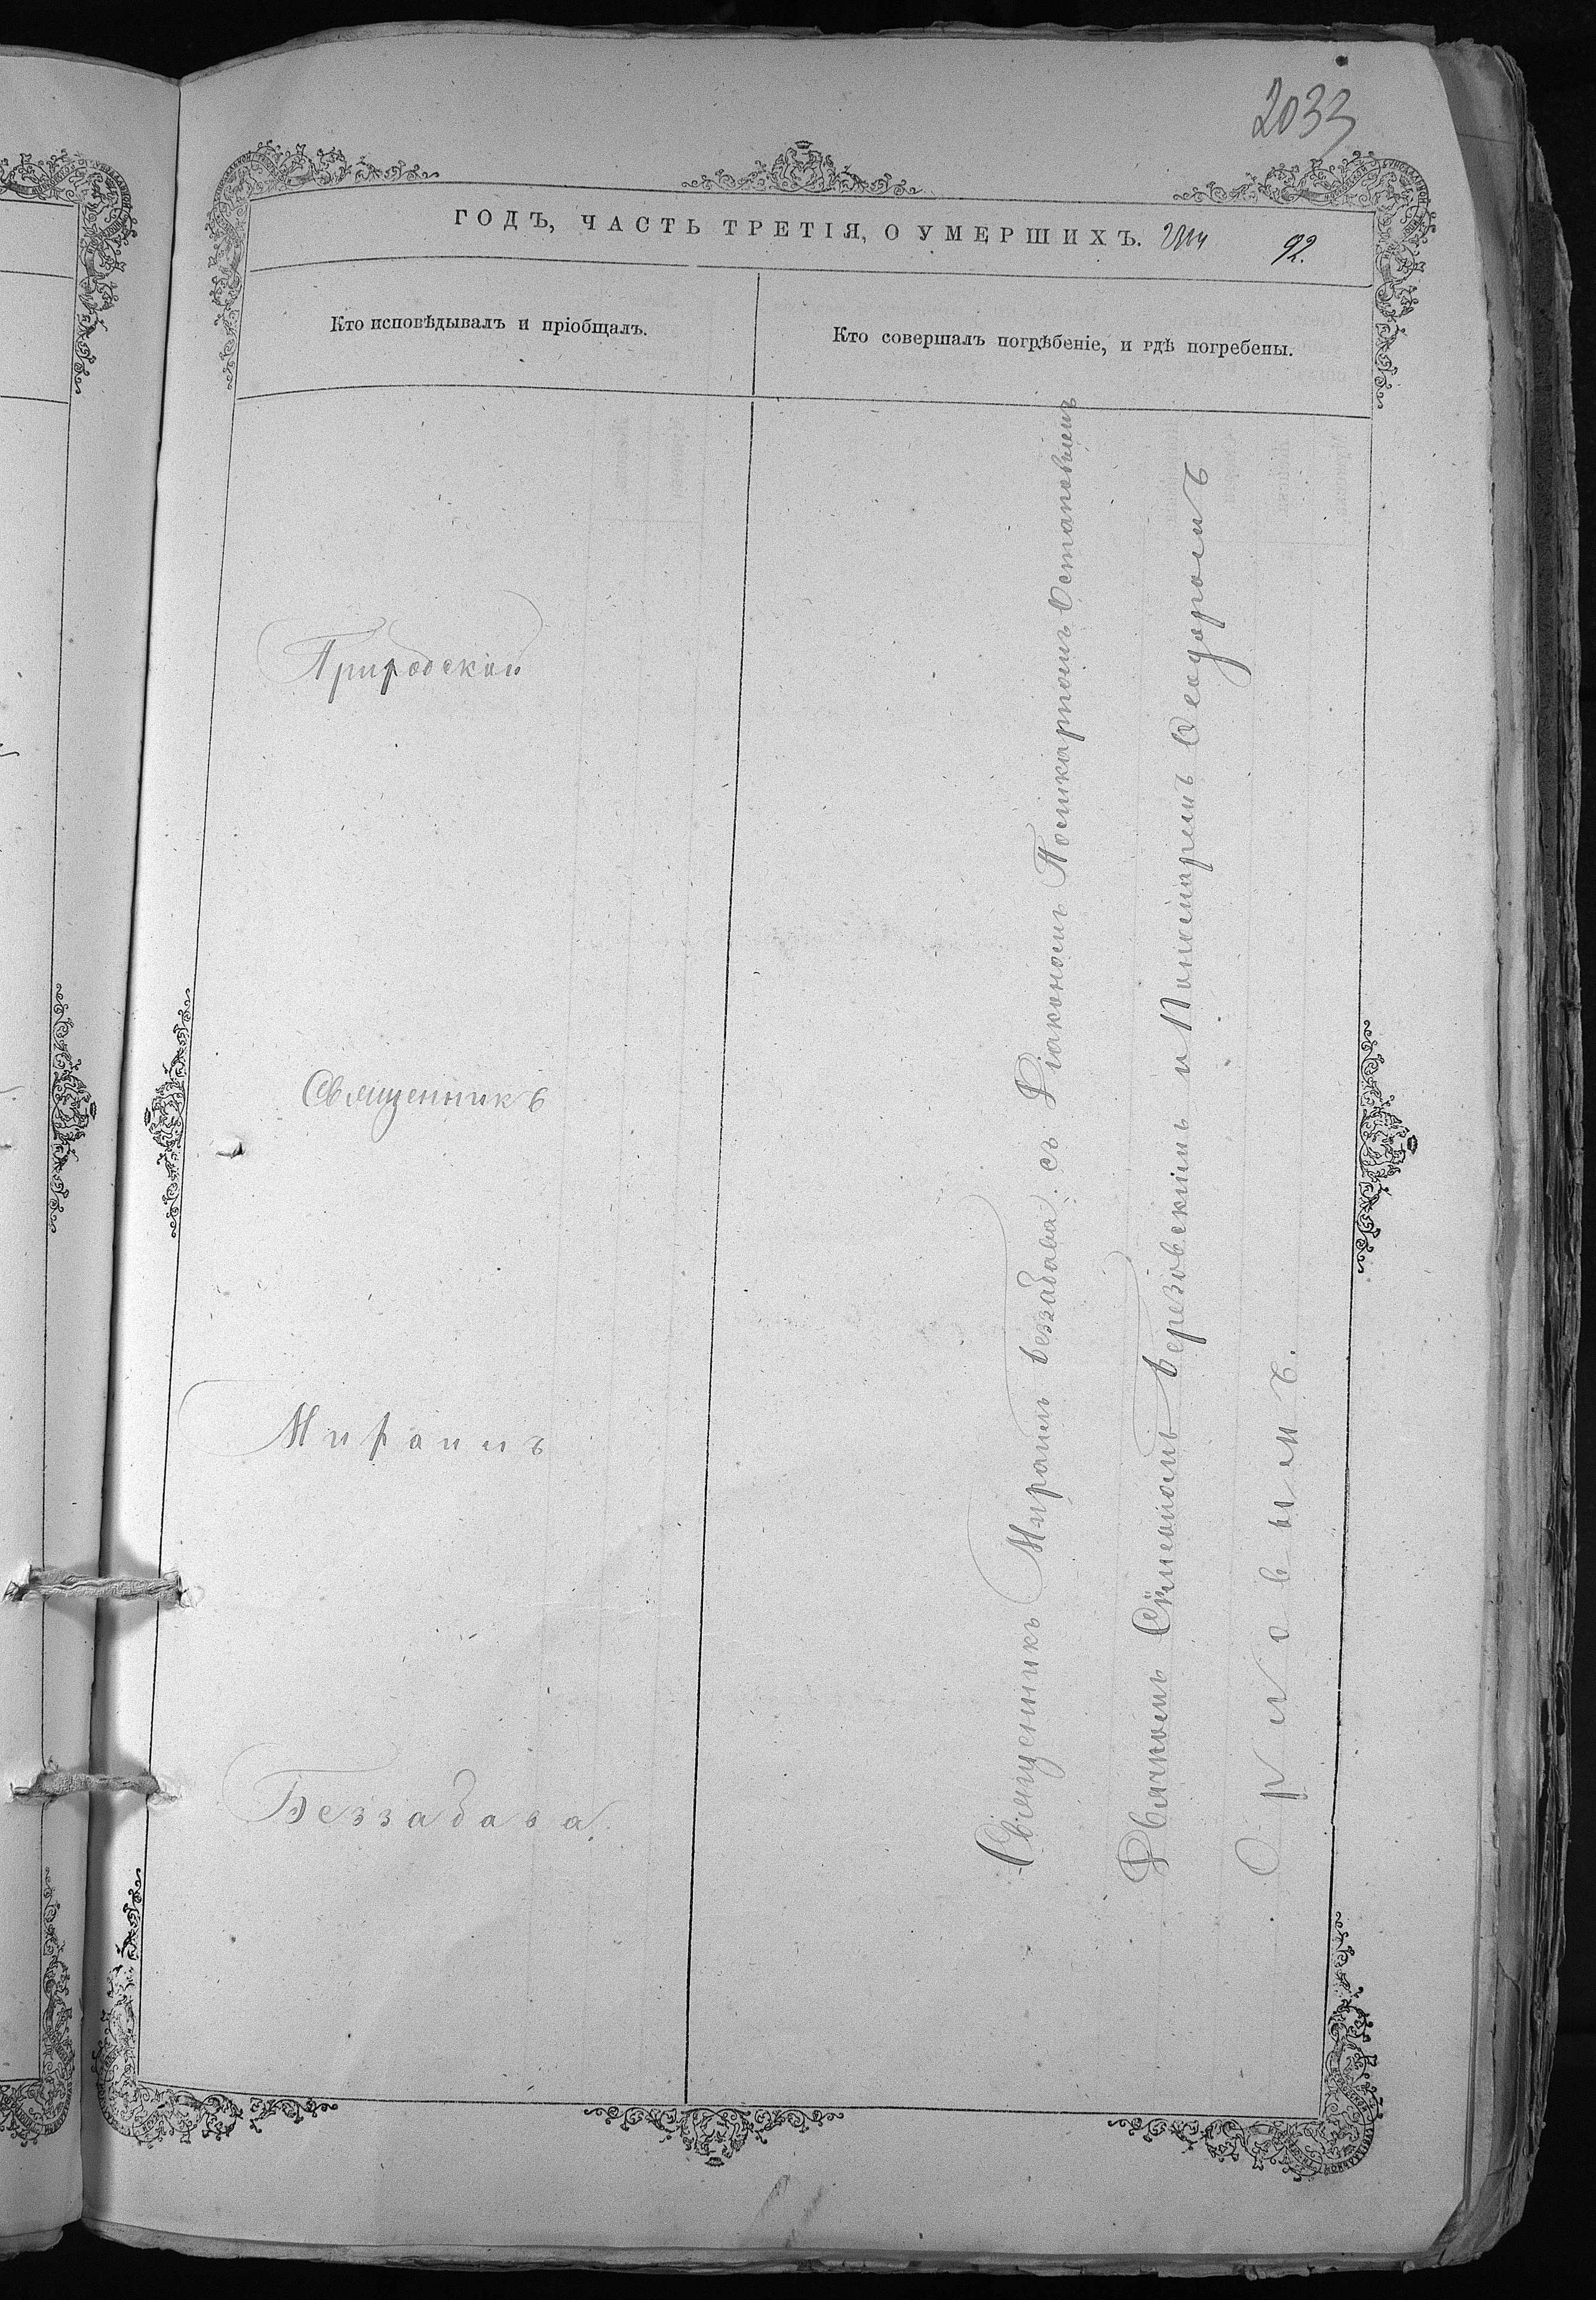 2033
ГОДЪ, ЧАСТЬ ТРЕТІЯ, О УМЕРШИХЪ. 92.
Кто исповѣдывалъ и пріобщалъ.
Кто совершалъ погрѣбеніе, и гдѣ погребены.
Приходскій
Священникъ
Мираимъ
Беззабава.
Священникъ Мираимъ Беззабава съ Діакономъ Поликарпомъ Остаповымъ
Дьячкомъ Сѵмеономъ Березовскимъ и Пономаремъ Ѳеодоромъ
Орловымъ.